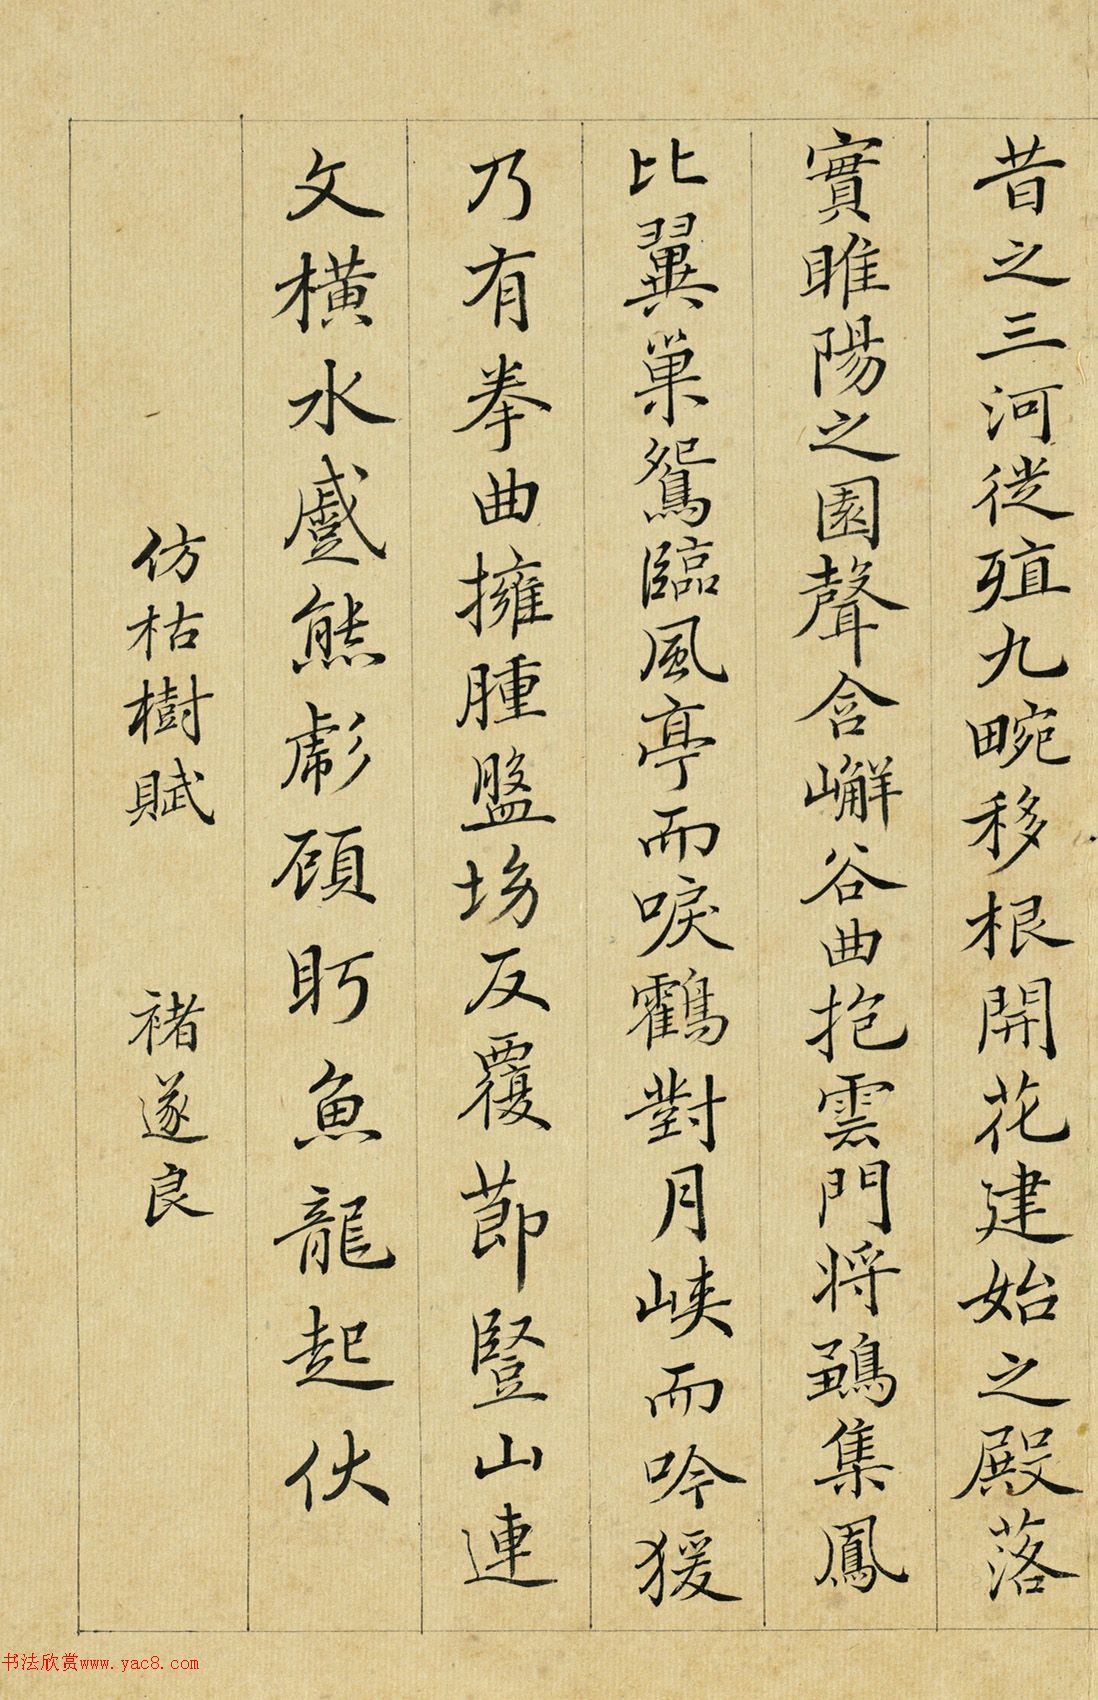 昔之三河徙殖九畹移根開花建始之殿落
實睢陽之園聲含嶰谷曲抱雲門將鶵集鳳
比翼巢鴛臨風亭而唳鶴對月峽而吟猨
乃有拳曲擁腫盤坳反覆節豎山連
文橫水蹙熊彪顧盻魚龍起伏
仿枯樹賦 褚遂良
书法欣赏www.yac8.com